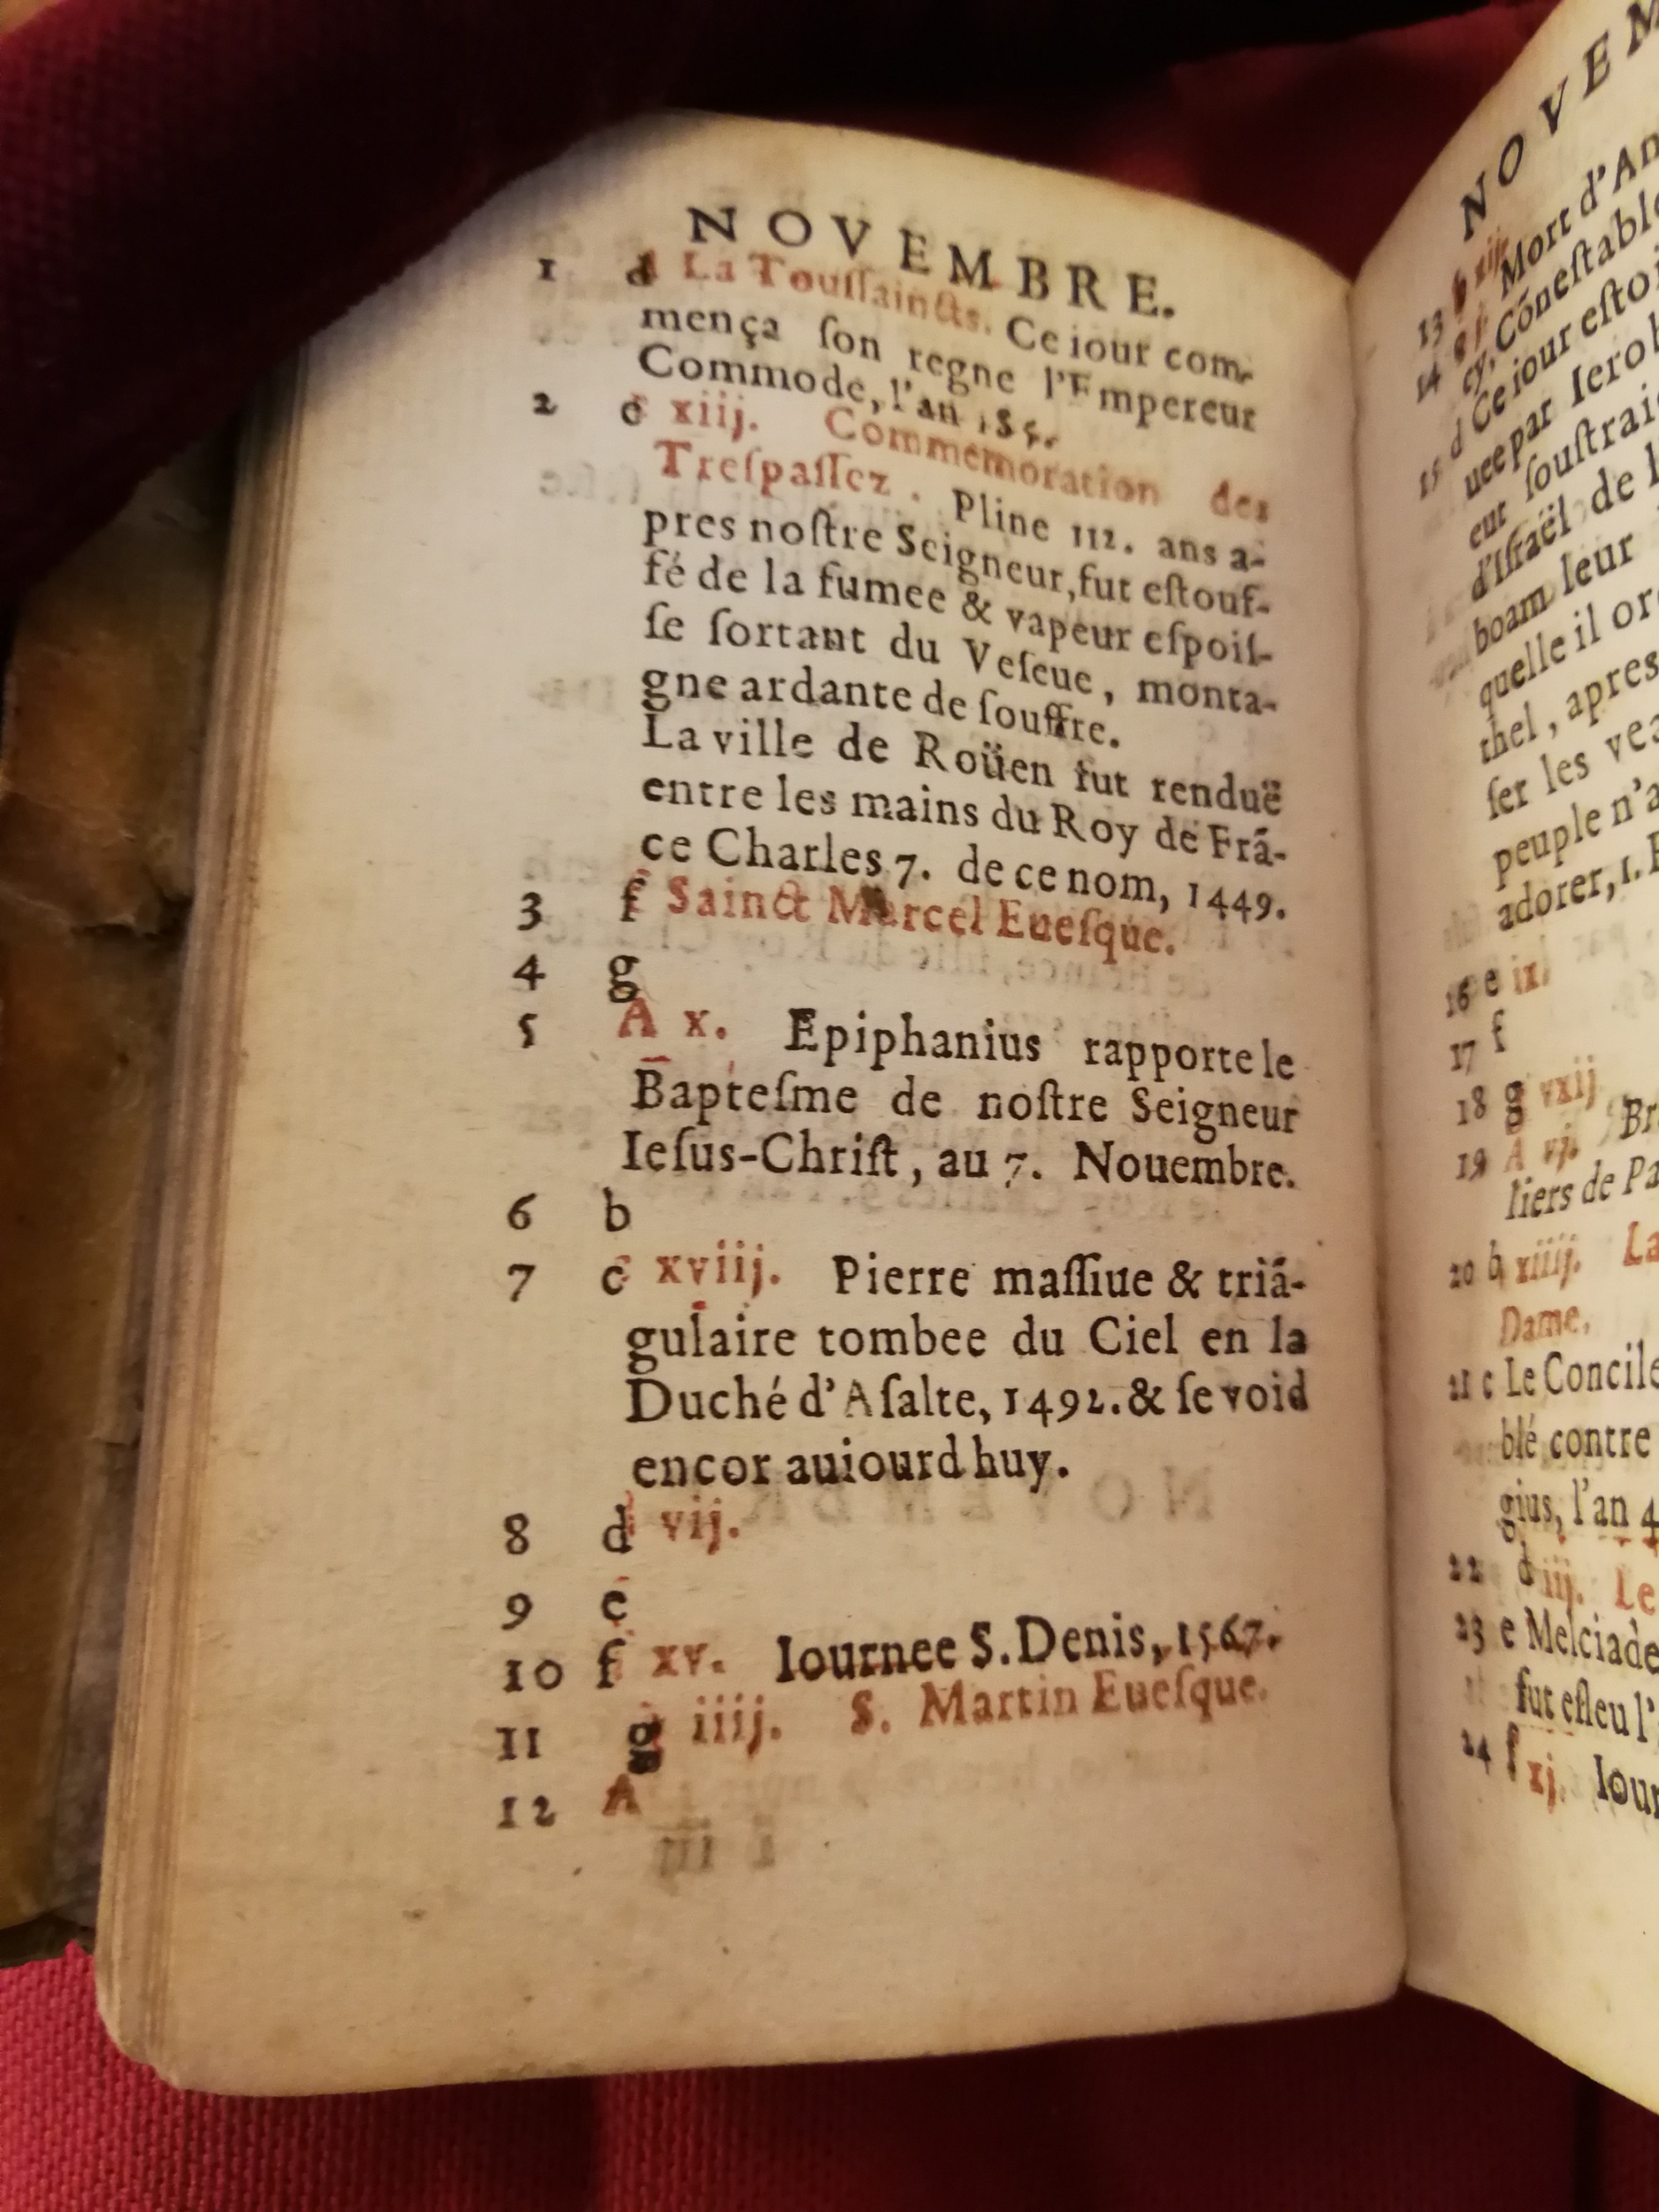 NOVEMBRE.
1 d La Touſſaincts. Ce iour com-
mença ſon regne l'Empereur
Commode, l'an 185.
2 e xiij. Commemoration des
Treſpaſſez. Pline 112. ans a-
pres noſtre Seigneur, fut eſtouf-
fé de la fumee & vapeur eſpoiſ-
ſe ſortant du Veſeue, monta-
gne ardante de ſouffre.
La ville de Roüen fut renduë
entre les mains du Roy de Frã-
ce Charles 7. de ce nom, 1449.
3 f Sainct Marcel Eueſque.
4 g
5 A x. Epiphanius rapporte le
Bapteſme de noſtre Seigneur
Ieſus-Chriſt, au 7. Nouembre.
6 b
7 c xviij. Pierre maſſiue & triã-
gulaire tombee du Ciel en la
Duché d'Aſalte, 1492. & ſe void
encor auiourdhuy.
8 d vij.
9 e
10 f xv. Iournee S. Denis, 1567.
11 g iiij. S. Martin Eueſque.
12 A
NOVEM
13 b xij. Mort d'An
14 cy, Cóneſtable
15 d Ce iour eſtoi
uee par Ierob
eut ſouſtrai
d'Iſraël de l
boam leur
quelle il or
thel, apres
ſer les vea
peuple n'a
adorer, 1.
16 e ix.
17 f
18 g xvij
19 A vj. Br
liers de Pa
20 b xiiij. La
Dame.
21 c Le Concile
blé contre
gius, l'an 4
22 d iij. Le
23 e Melciade
fut eſleu l'
24 f xj. Iour